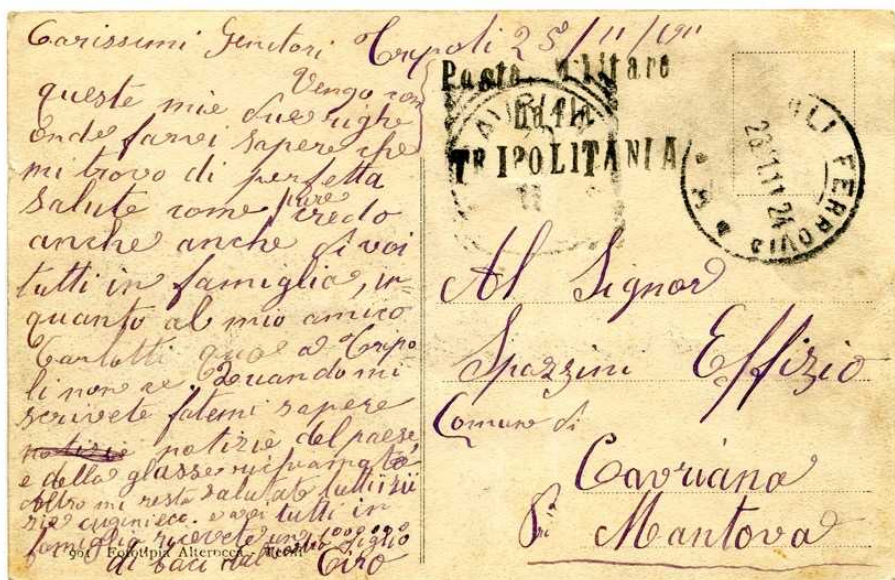 Carissimi Genitori Tripoli 25/11/1911
Vengo con
queste mie due righe
onde farvi sapere che
mi trovo di perfetta
salute come pure credo
anche anche di voi
tutti in famiglia, in
quanto al mio amico
Carlotti qua a Tripo
li non ce. Quando mi
scrivete fatemi sapere
notizie notizie del paese,
e della glasse
altro mi resta salutate tutti i zii
zie cugini ecc. e voi tutti in
famiglia ricevete un 1000000
di baci dal vostro figlio
Ciro
901 Fototipia Alterocca - Terni
Posta Militare
della
TRIPOLITANIA
CAVRIANA
11
NAPOLI FERROVIA
24
Al Signor
Spazzini Effizio
Comune di
Cavriana
Pri Mantova